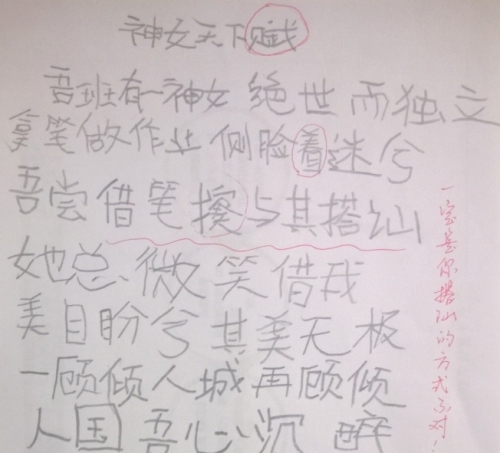 神女天下赋
吾班有一神女 绝世而独立
拿笔做作业 侧脸着迷兮
吾尝借笔擦与其搭讪
她总微笑借我
美目盼兮其美无极
一顾倾人城再顾倾
人国吾心沉醉
一定是你搭讪的方式不对!